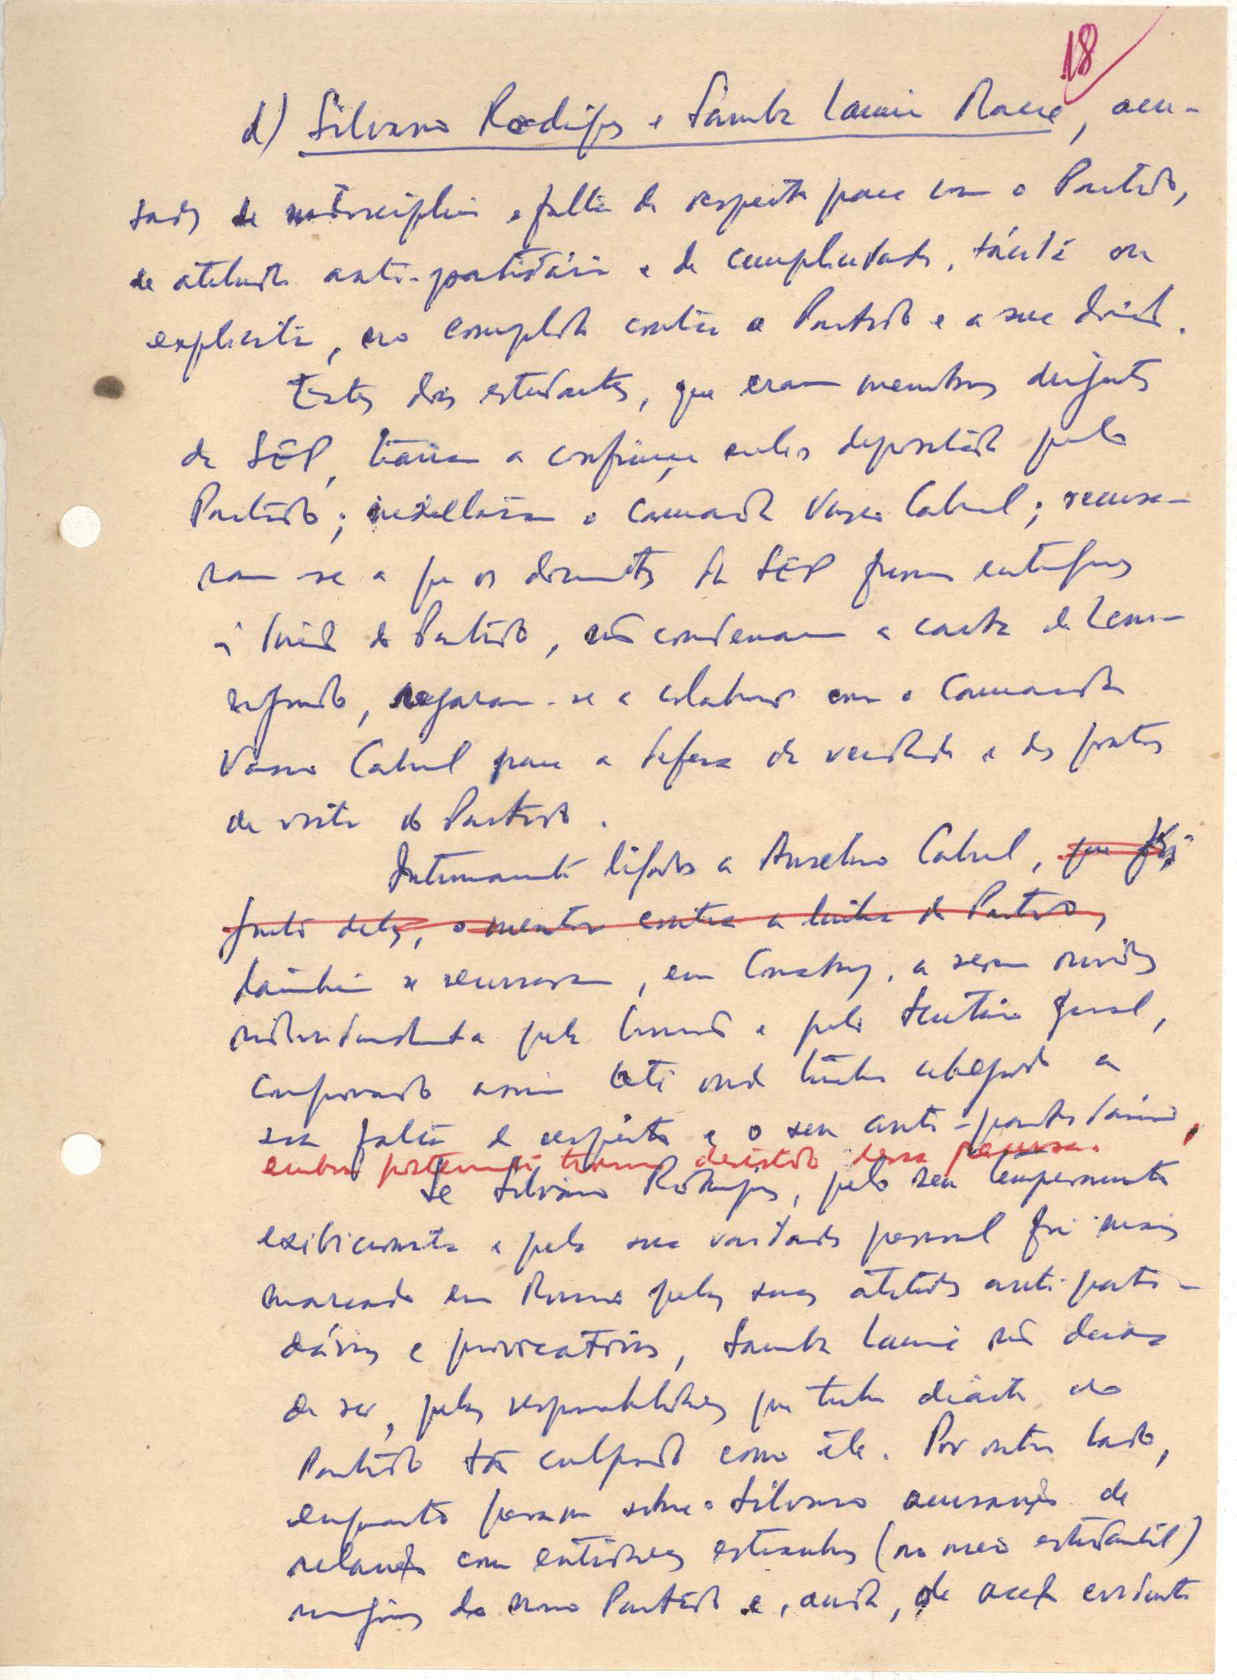 18
d) Silvano Rodrigues e Samba Lamine Mané, acu-
sados de indisciplina e falta de respeito para com o Partido,
de atitude anti-partidária e de cumplicidade, tácita ou
explícita, no complot contra o Partido e a sua direcção.
Estes dois estudantes, que eram membros dirigentes
da SEP, traíram a confiança neles depositada pelo
Partido; insultaram o camarada Vasco Cabral; recusa-
ram-se a que os documentos da SEP fossem entregues
à direcção do Partido, não condenaram a carta de
negaram-se a colaborar com o camarada
Vasco Cabral para a defesa da verdade e dos pontos
de vista do Partido.
Intimamente ligados a Anselmo Cabral, que foi,
junto deles, o mentor contra a linha do Partido,
também se recusaram, em Conakry, a serem ouvidos
pela e pelo Secretário Geral,
comprovando assim até onde tinha chegado a
sua falta de respeito e o seu anti-partidarismo,
embora posteriormente tivessem desistido dessa recusa.
Se Silvano Rodrigues, pelo seu temperamento
exibicionista e pela sua vaidade pessoal foi mais
marcado em pelas suas atitudes anti-parti-
dárias e provocatórias, Samba Lamine não deixa
de ser, pelas responsabilidades que tinha diante do
Partido tão culpado como êle. Por outro lado,
enquanto pesam sobre o Silvano acusações de
relações com entidades estranhas (no meio estudantil)
do nosso Partido e, ainda, de evidente